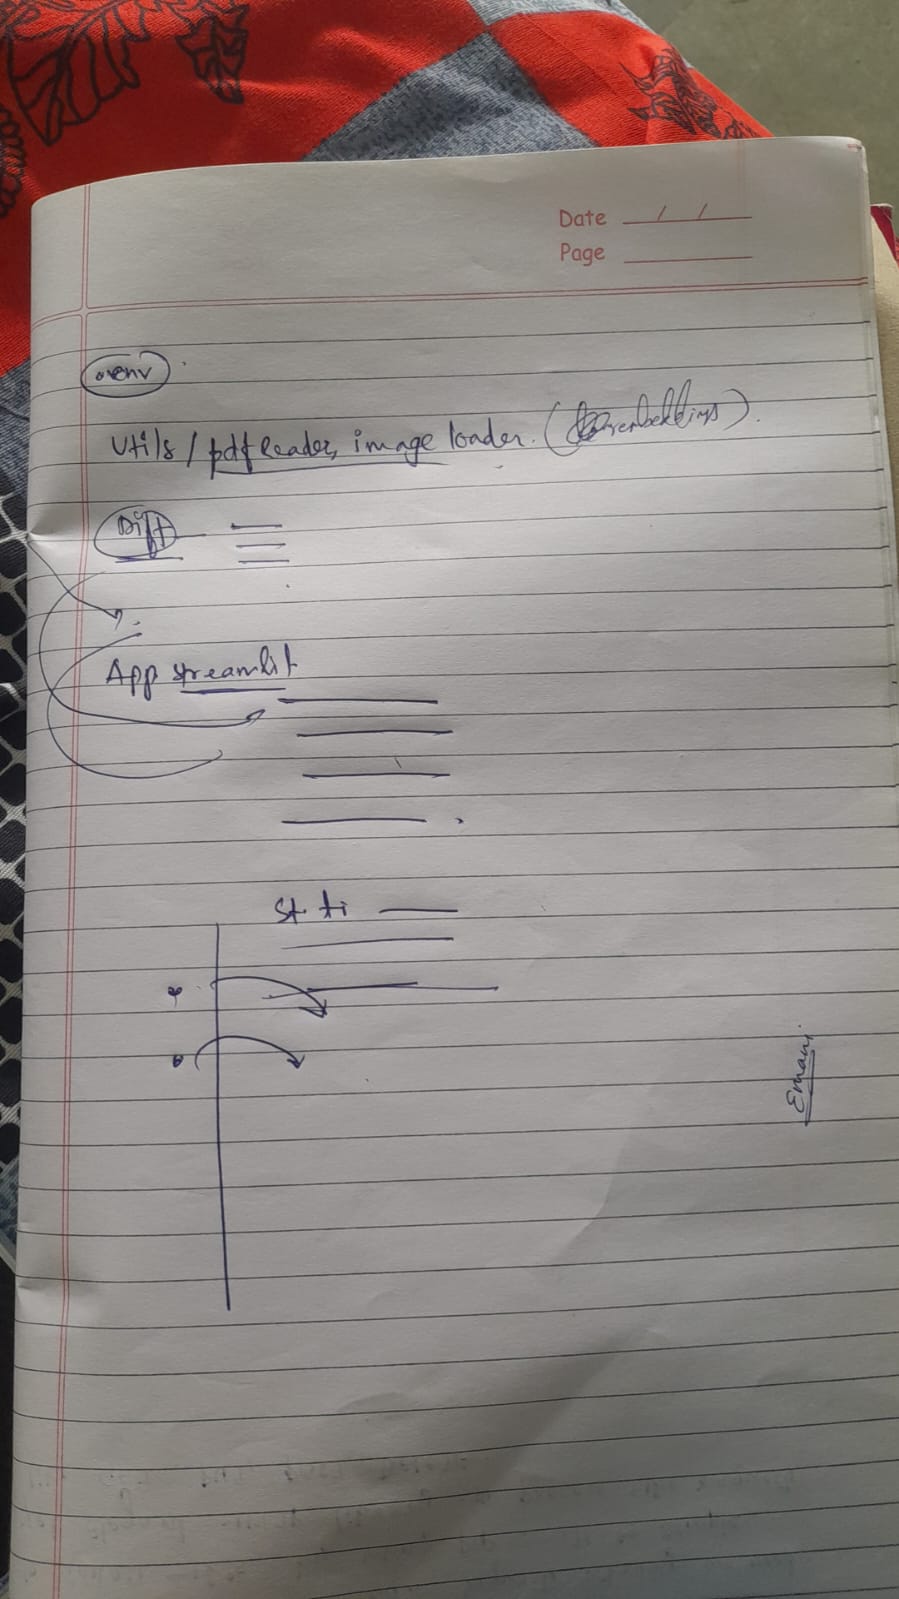 Date / /
Page
.env
Utils / pdf Reader, image loader. (embeddings).
App streamlit
St. ti